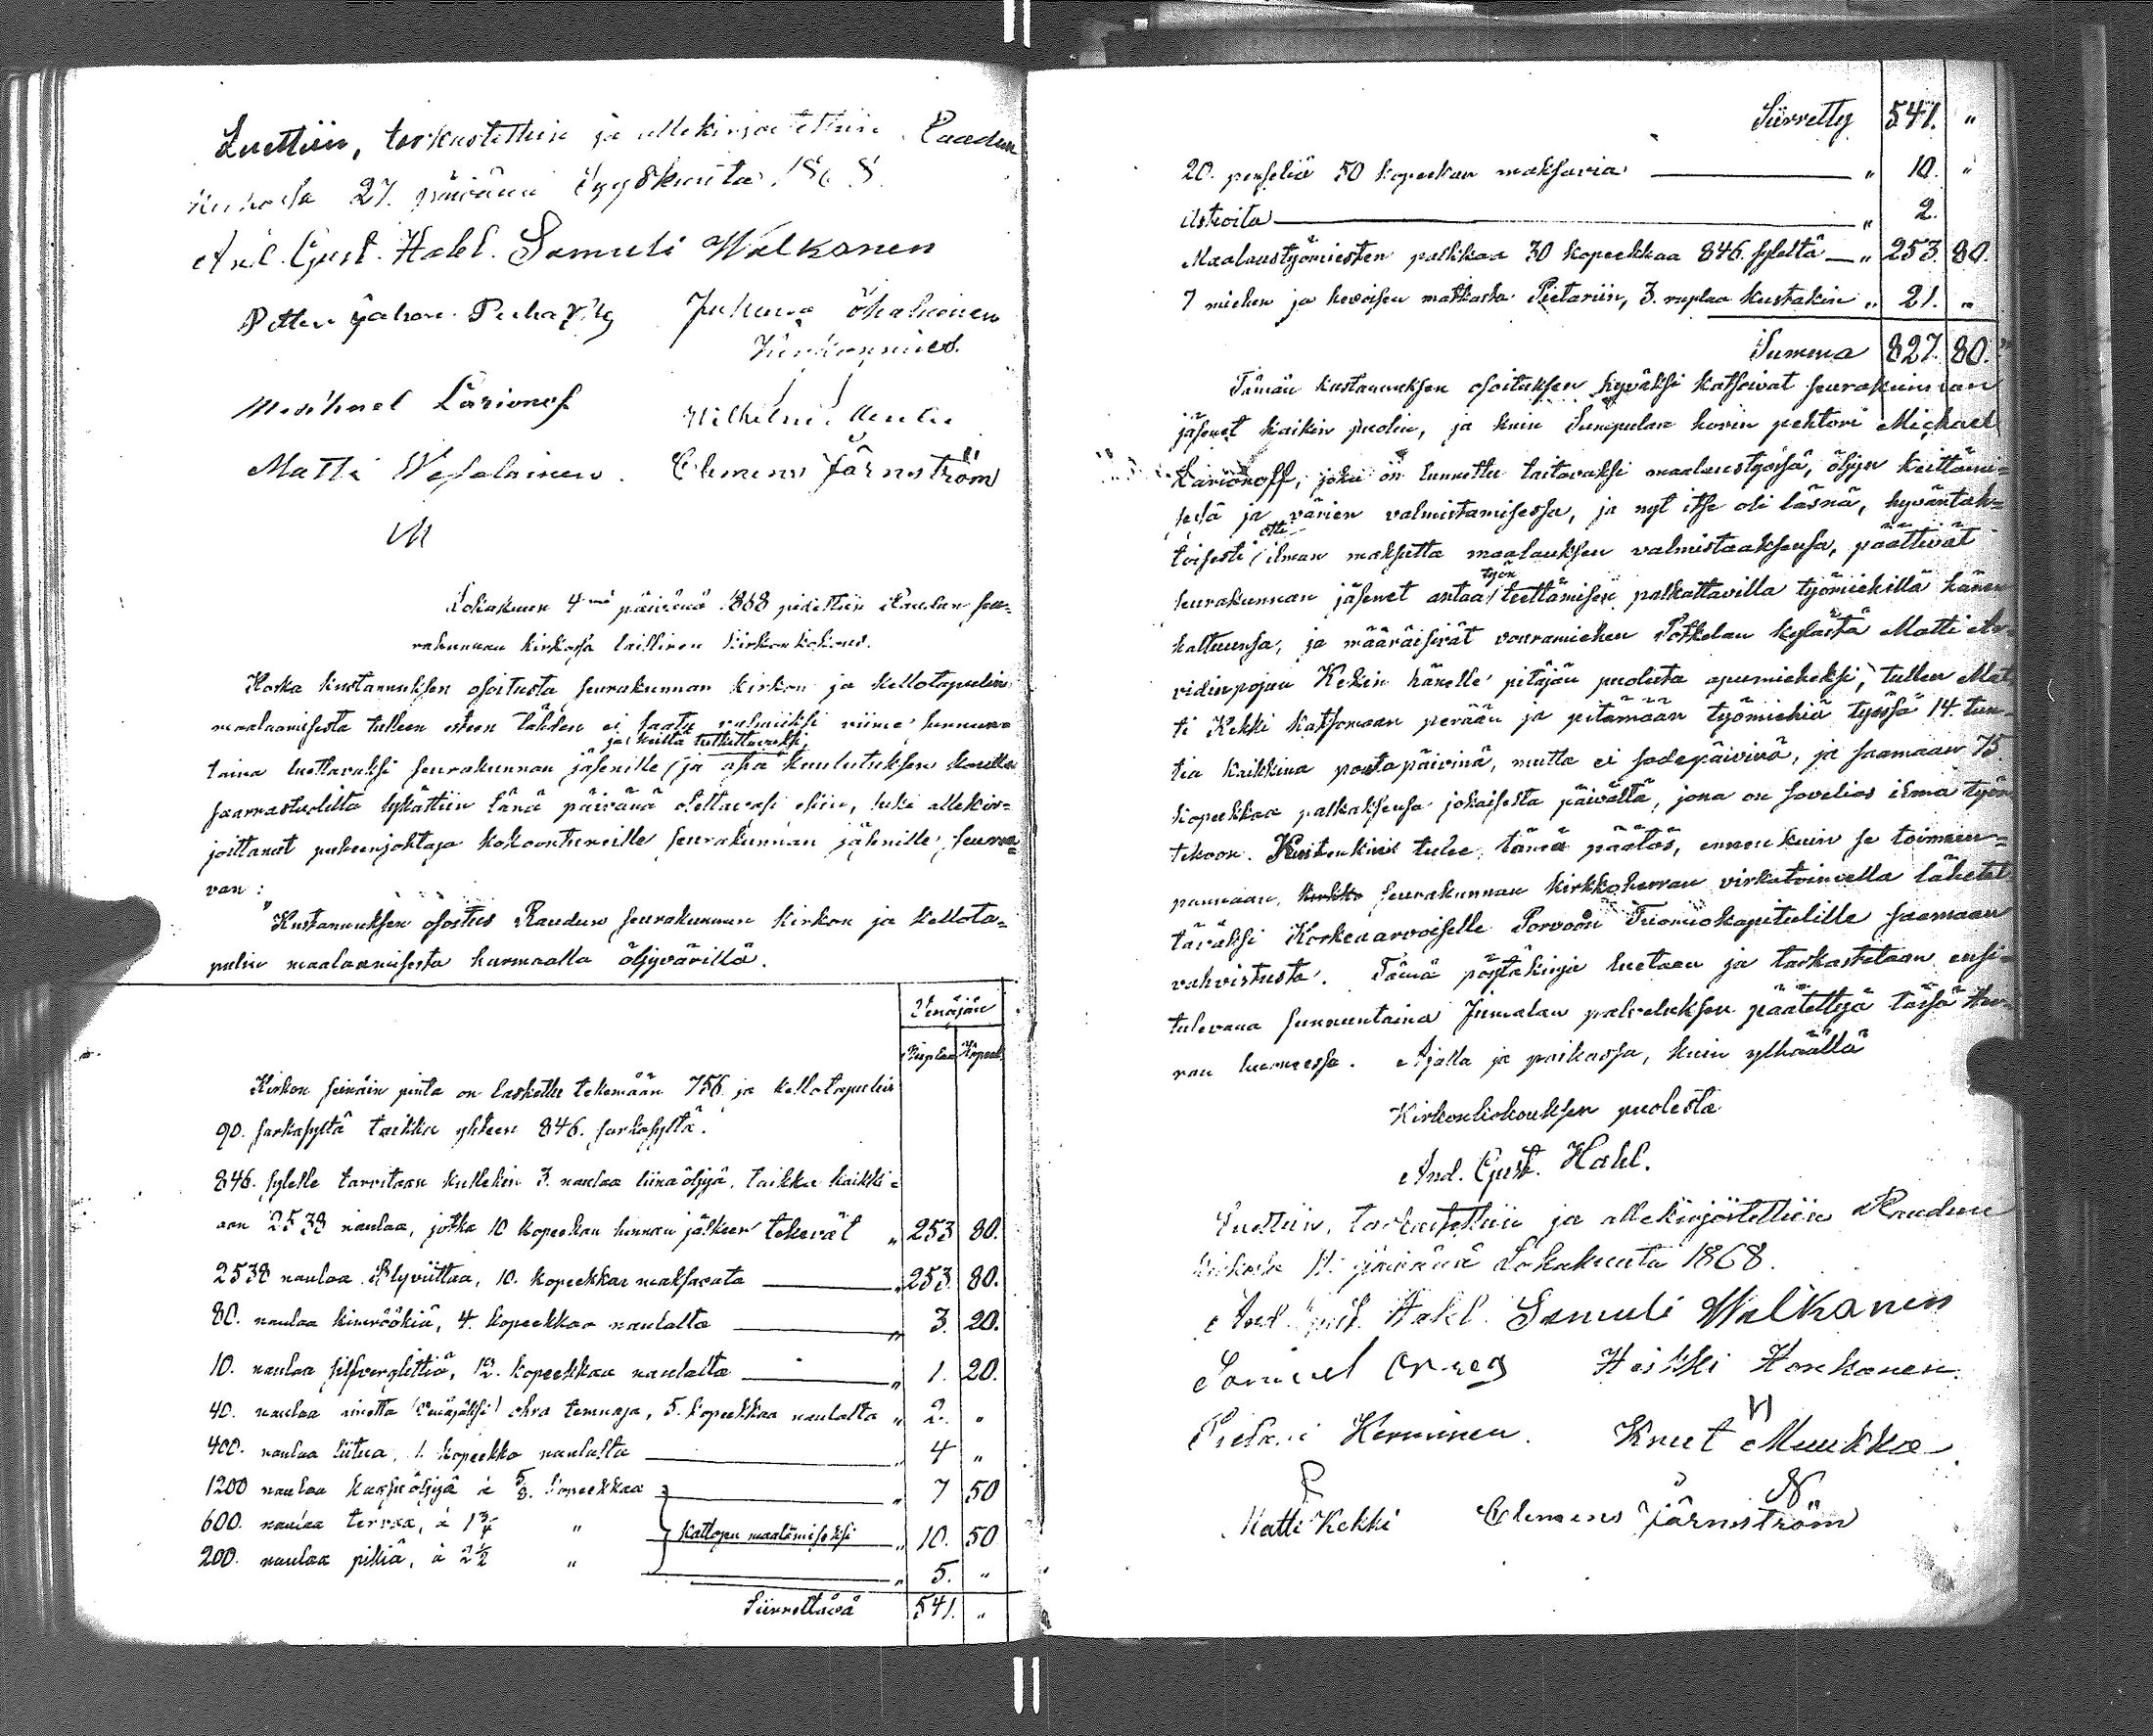 Luettiin, tarkastettiin ja allekirjoitettiin Raudun
kirkossa 27. päivänä Syyskuuta 1868.
And. Gust. Hahl. Samuli Walkonen
Petter Juhana
Kirkonmies.
Mikhael Larionof Wilhelm
Matti Wesalainen. Clemens Järnström
Lokakuun 4nä päivänä 1868 pidettiin Raudun seu-
rakunnan kirkossa laillinen kirkonkokous.
Koska kustannuksen osoitusta seurakunnan kirkon ja kellotapulin
maalaamisesta tulleen esteen tähden ei saatu valmiiksi viime sunnun-
ja heiltä tutkittavaksi,
taina luettavaksi seurakunnan jäsenille (ja asia kuulutuksen kautta
saarnastuolilta lykättiin tänä päivänä otettavasi esiin, luki allekir-
joittanut puheenjohtaja kokoontuneille seurakunnan jäsenille, seuraa-
van:
"Kustannuksen osoitus Raudun seurakunnan kirkon ja kellota-
pulin maalaamisesta harmaalla öljyvärillä.
Venäjän
Ruplaa Kopeek
Kirkon seinäin pinta on laskettu tekemään 756 ja kellotapulin
90. sarkasyltä taikka yhteen 846. sarkasyltä.
846. sylelle tarvitaan kullekin 3. naulaa liinaöljyä, taikka kaikki-
aan 2538 naulaa, jotka 10 kopeekan hinnan jälkeen tekevät " 253 80.
2538 naulaa Blyviittaa, 10. kopeekkaa maksavata " 253. 80.
80. naulaa kimröökiä, 4. kopeekkaa naulalta " 3. 20.
10. naulaa silfverglittiä, 12. kopeekkaa naulalta " 1. 20.
40. naulaa (Venäjäksi) ohra temnaja, 5. kopeekkaa naulalta " 2. "
400. naulaa liitua, 1. kopeekka naulalta " 4 "
1200 naulaa à 5/8. kopeekkaa " 7 50
600. naulaa tervaa, à 1 3/4 " kattopu maalamiseksi " 10. 50
200. naulaa pikiä, à 2 1/2 " " 5. "
Siirrettävä 541. "
Siirretty 541. "
20. penseliä 50 kopeekan maksavia " 10. "
Astioita " 2.
Maalaustyömiesten palkkaa 30 kopeekkaa 846. syleltä " 253. 80.
7 miehen ja hevoisen matkasta Pietariin, 3. ruplaa kustakin " 21. "
Summa 827. 80."
Tämän kustannuksen osoituksen hyväksi katsoivat seurakunnan
jäsenet kaikin puolin, ja kuin Sumpulan hovin pehtori Michael
Larionoff, joka on tunnettu taitavaksi maalaustyössä, öljyn keittämi-
sessä ja värien valmistamisessa, ja nyt itse oli läsnä, hyväntah-
otti
toisesti (ilman maksutta maalauksen valmistaaksensa, päättivät
työn
seurakunnan jäsenet antaa (teettämisen palkattavilla työmiehillä hänen
haltuunsa, ja määräisivät vouramiehen Potkelan kylästä Matti Ar-
vidinpojan Kekin hänelle pitäjän puolusta apumieheksi, tullen Mat-
ti Kekki katsomaan perään ja pitämään työmiehiä työssä 14. tun-
tia kaikkina poutapäivinä, mutta ei sadepäivinä, ja saamaan 75
kopeekkaa palkaksensa jokaisesta päivältä, jona on sovelias ilma työn
tekoon. Kuitenkin tulee tämä päätös, ennenkuin se toimeen-
pannaan, kirkko seurakunnan kirkkoherran virkatoimella lähetet-
täväksi Korkeaarvoiselle Porvoon Tuomiokapitulille saamaan
vahvistusta. Tämä pöytäkirja luetaan ja tarkastetaan ensi-
tulevana sunnuntaina Jumalan palveluksen päätettyä tässä Her-
ran huoneessa. Ajalla ja paikassa, kuin ylhäällä
Kirkonkokouksen puolesta
And. Gust. Hahl.
Luettiin, tarkastettiin ja allekirjoitettiin Raudun
kirkossa 11. päivänä Lokakuuta 1868.
And. Gust. Hahl. Samuli Walkanen
Samuel Heikki Honkanen.
Pietari Kerminen. Knut Muukka
Matti Kekki Clemens Järnström